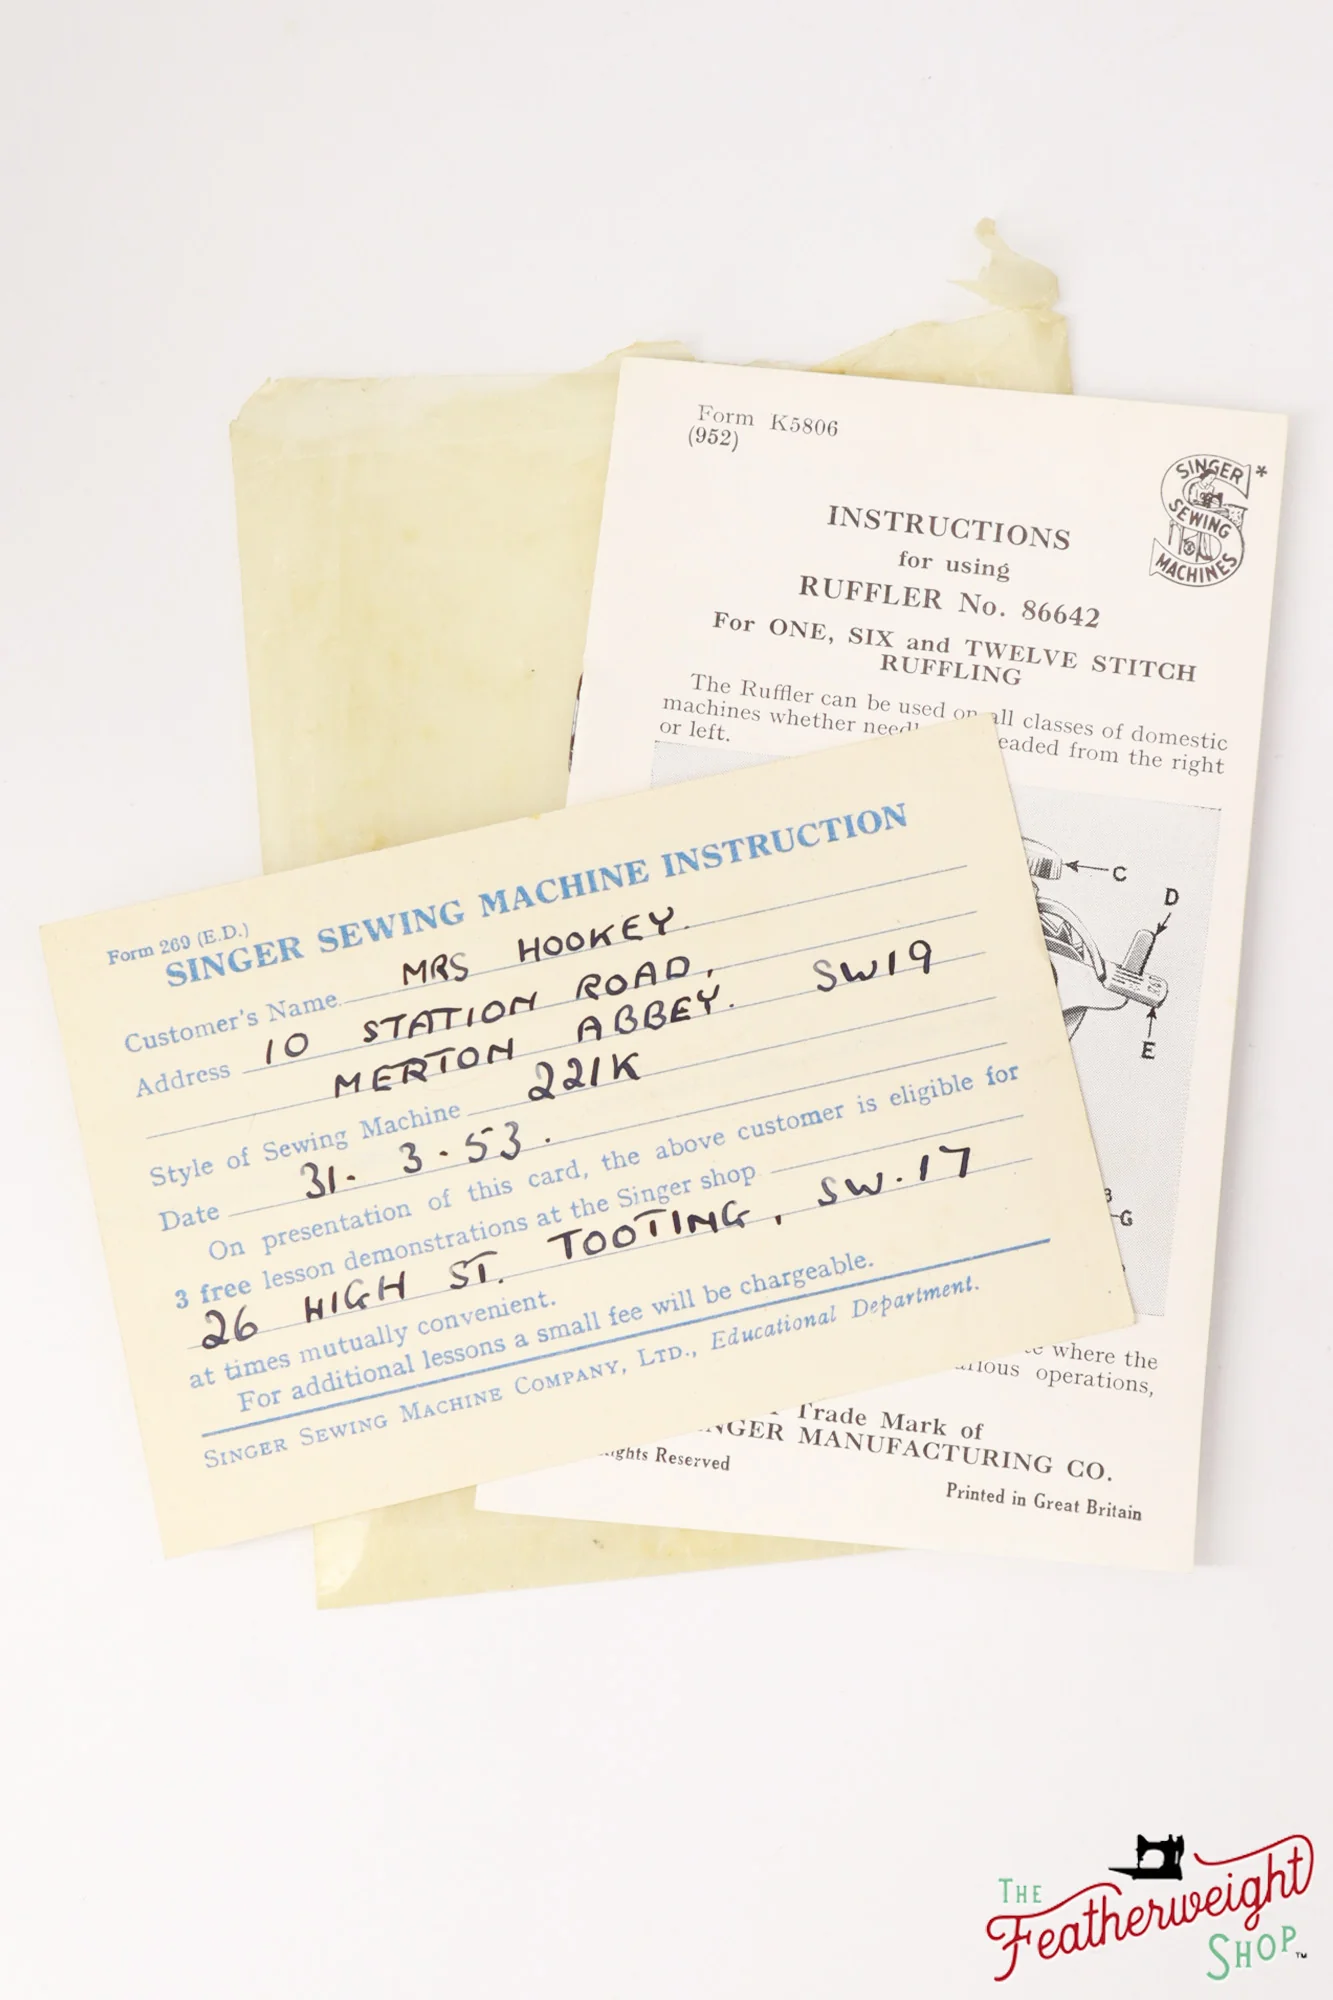 Form K5806
(952)
SINGER *
SEWING
MACHINES
INSTRUCTIONS
for using
RUFFLER No. 86642
For ONE, SIX and TWELVE STITCH
RUFFLING
The Ruffler can be used on all classes of domestic
machines whether eaded from the right
or left.
C
D
E
G
where the
operations,
Trade Mark of
MANUFACTURING CO.
Reserved
Printed in Great Britain
Form 269 (E.D.)
SINGER SEWING MACHINE INSTRUCTION
Customer's Name MRS HOOKEY.
Address 10 STATION ROAD,
MERTON ABBEY. SW19
Style of Sewing Machine 221K
Date 31. 3. 53.
On presentation of this card, the above customer is eligible for
3 free lesson demonstrations at the Singer shop
26 HIGH ST. TOOTING, SW.17
at times mutually convenient.
For additional lessons a small fee will be chargeable.
SINGER SEWING MACHINE COMPANY, LTD., Educational Department.
THE
Featherweight
SHOP™